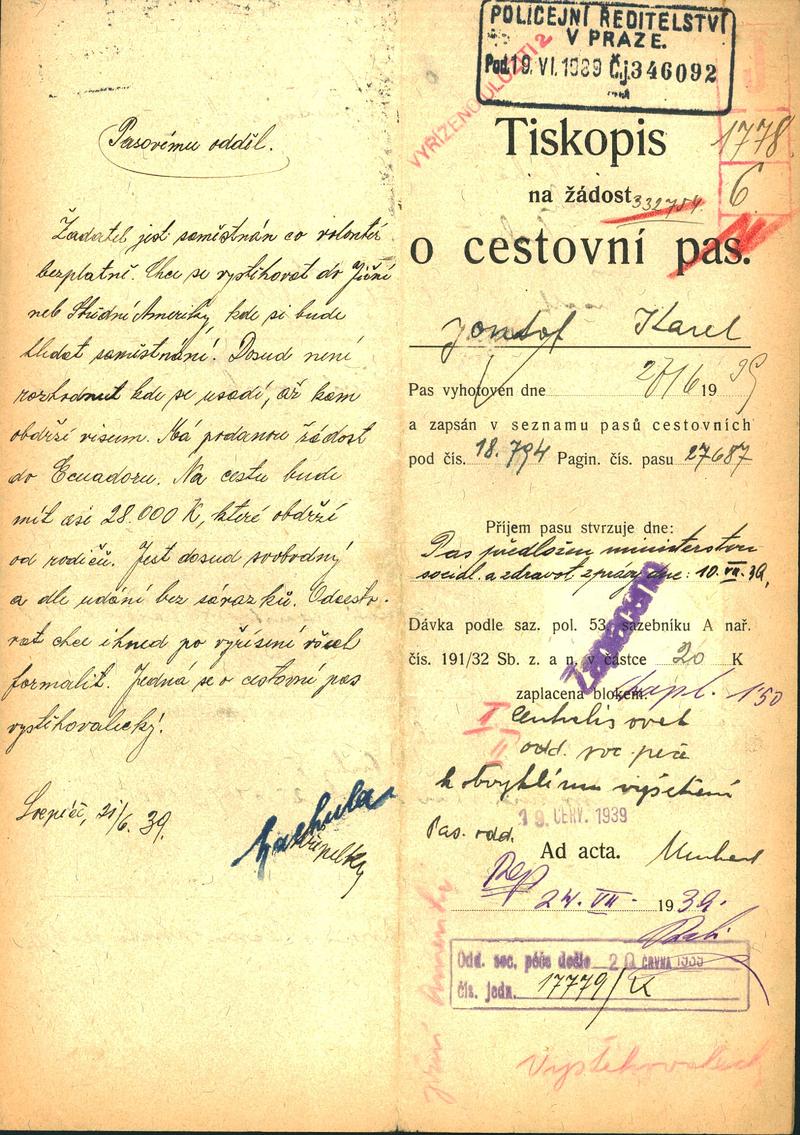 Pasovému odděl.
Žadatel jest zaměstnán co volontér
bezplatně. Chce se vystěhovat do Jižní
neb Střední Ameriky, kde si bude
hledat zaměstnání. Dosud není
rozhodnut kde se usadí, až kam
obdrží visum. Má podanou žádost
do Ecuadoru. Na cestu bude
mít asi 28.000 K, které obdrží
od rodičů. Jest dosud svobodný
a dle udání bez závazků. Odcesto-
vat chce ihned po vyřízení všech
formalit. Jedná se o cestovní pas
vystěhovalecký.
21/6. 39.
POLICEJNÍ ŘEDITELSTVÍ
V PRAZE.
Pod. 19. VI. 1939 Č.j. 346092
VYŘÍZENO ULOŽITI 2
Tiskopis
1778
na žádost
332754
6
o cestovní pas.
Karel
Pas vyhotoven dne 27/6 1939
a zapsán v seznamu pasů cestovních
pod čís. 18.794 Pagin. čís. pasu 27687
Příjem pasu stvrzuje dne:
Pas předložen ministerstvu
sociál. a zdravot. zprávy dne: 10. VII. 39,
Dávka podle saz. pol. 53 sazebníku A nař.
čís. 191/32 Sb. z. a n. v částce 20 K
Zaplaceno
zaplacena blokem. 1·50
I Centralis ovat
II odd. soc. péče
k obvyklému vyšetření
19. ČERV. 1939
Pas. odd.
Ad acta.
24. VII. 1939.
Odd. soc. péče došlo 20. ČRVNA 1939
čís. jedn. 17779/
Jižní Amerika
Vystěhovalecký